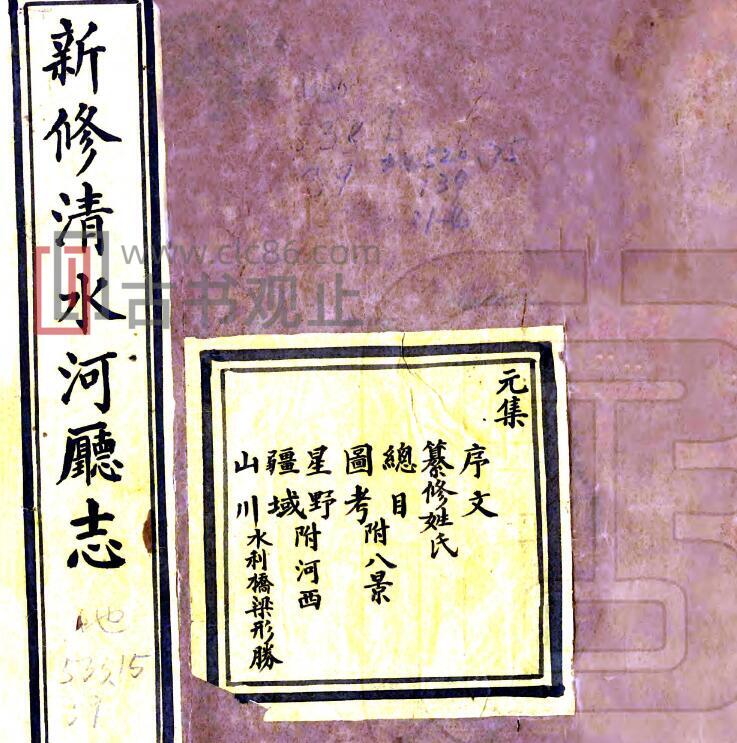 新修清水河廳志
地
533.15
39
www.clc86.com
古书观止
元集
序文
纂修姓氏
總目
圖考附八景
星野
疆域附河西
山川水利橋梁形勝